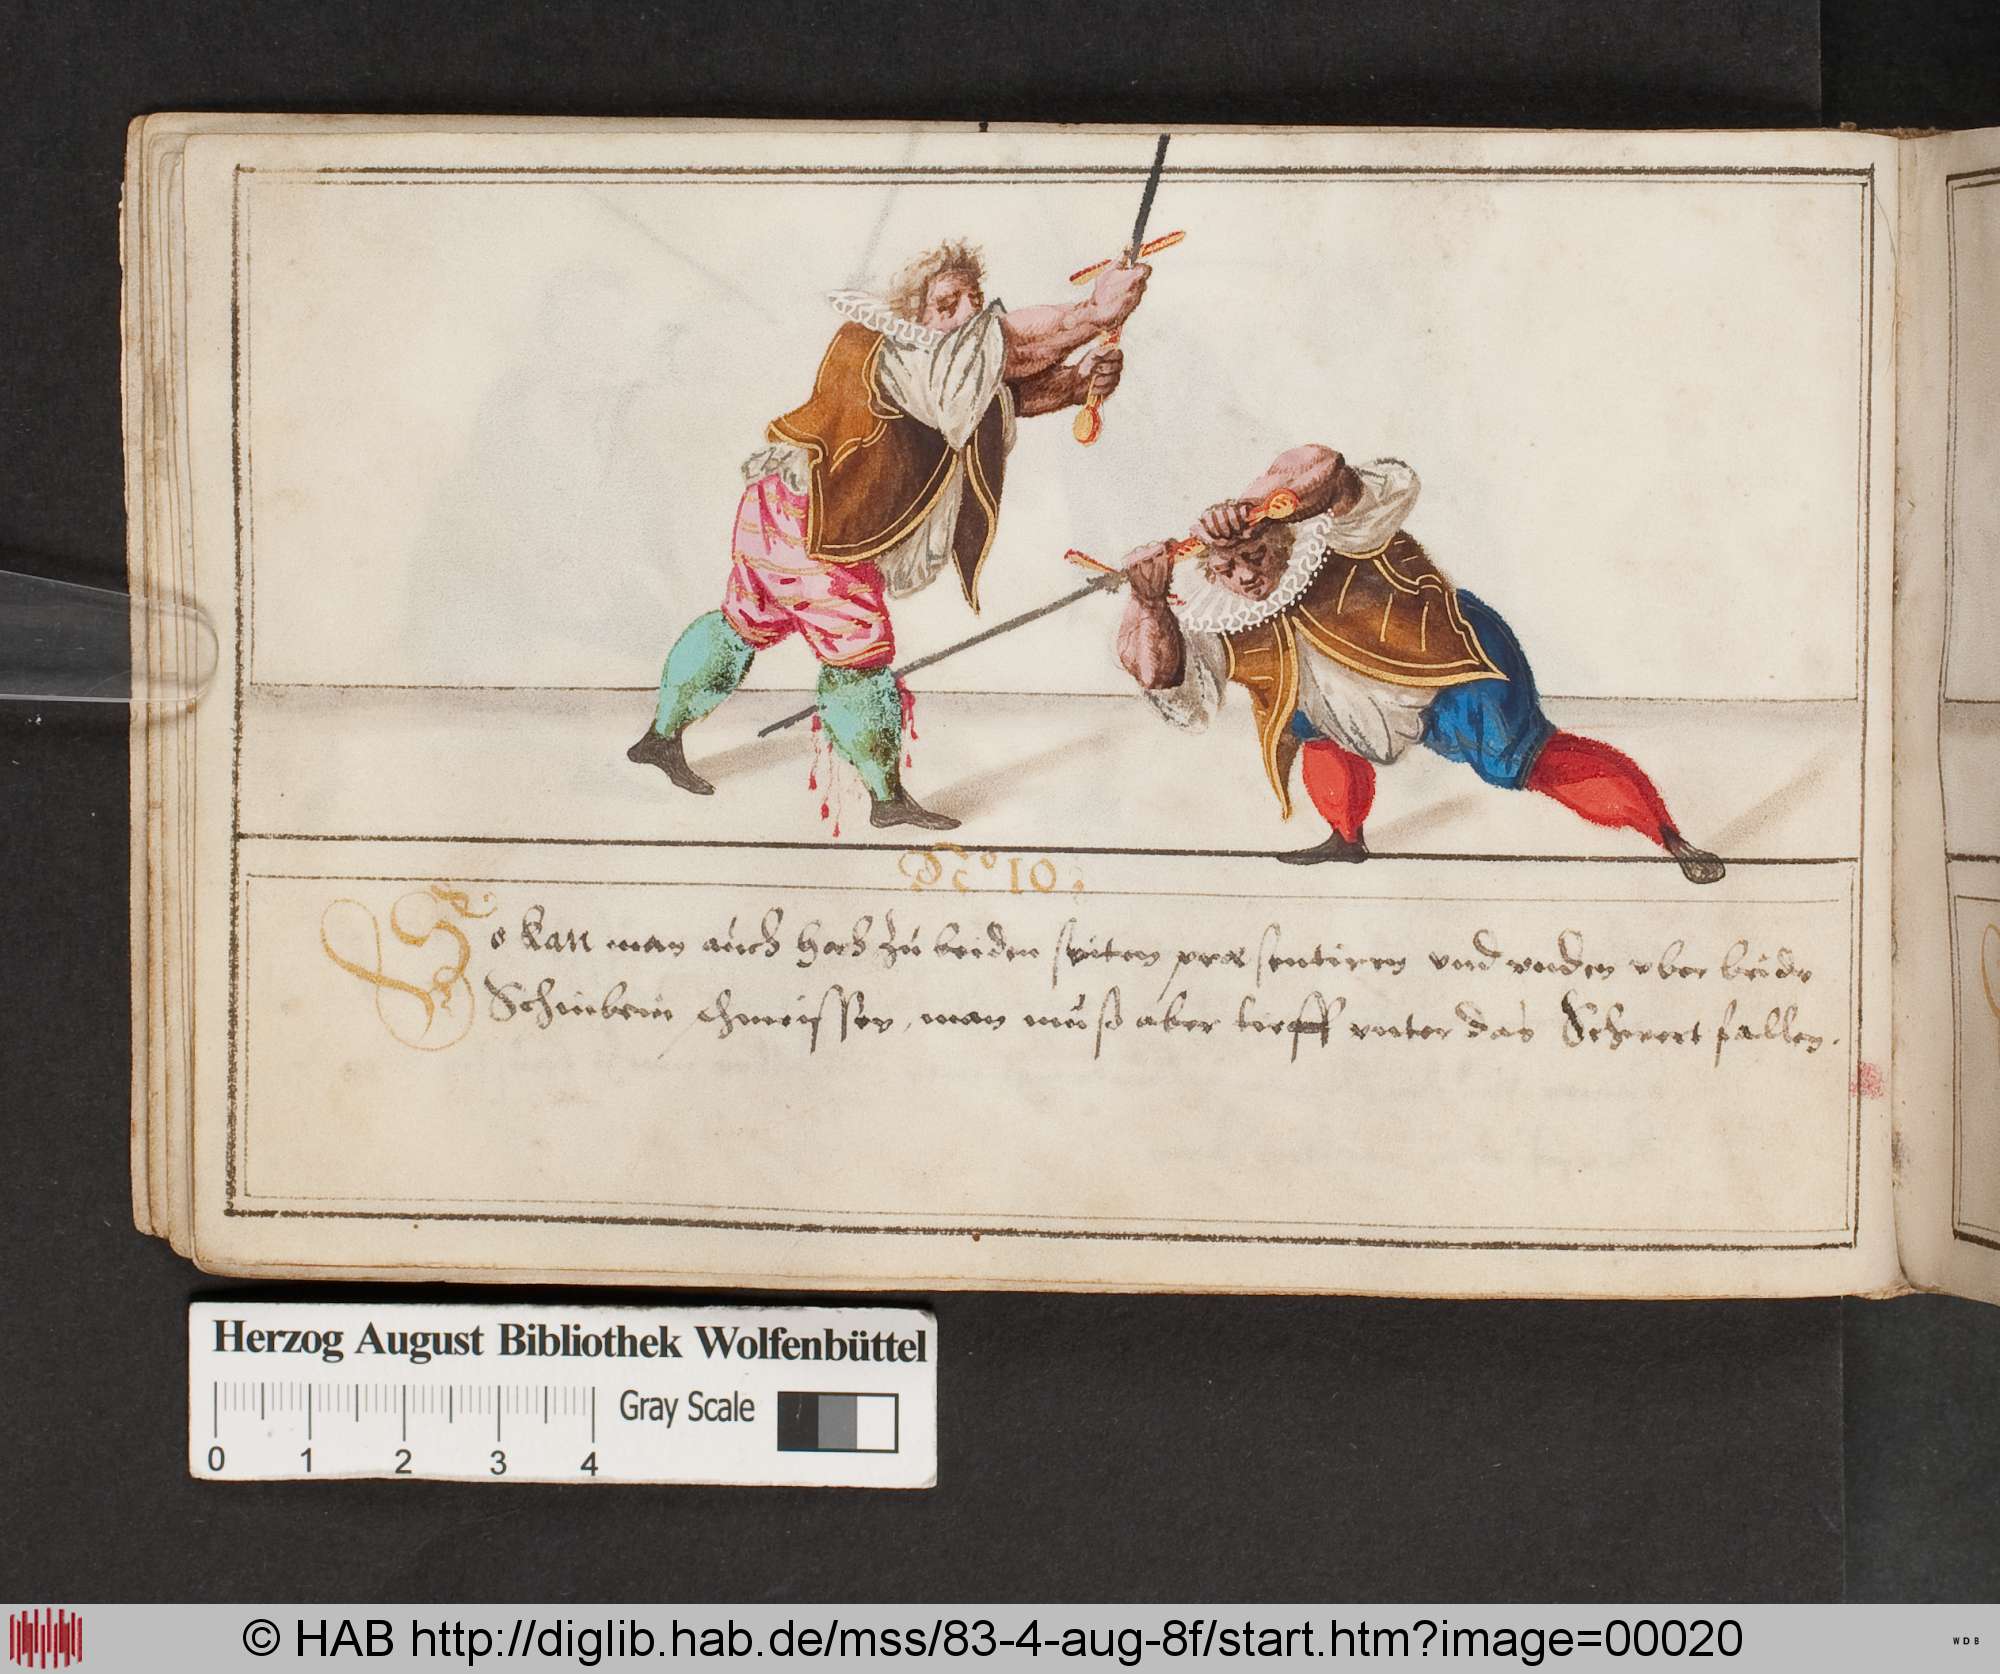 So kan man auch hoch zu beiden seiten præsentiren vnd vnden vber beide
Schinbein schmeissen, man muß aber tieff vnter das Schwert fallen.
Herzog August Bibliothek Wolfenbüttel
Gray Scale
0 1 2 3 4
© HAB http://diglib.hab.de/mss/83-4-aug-8f/start.htm?image=00020
WDB